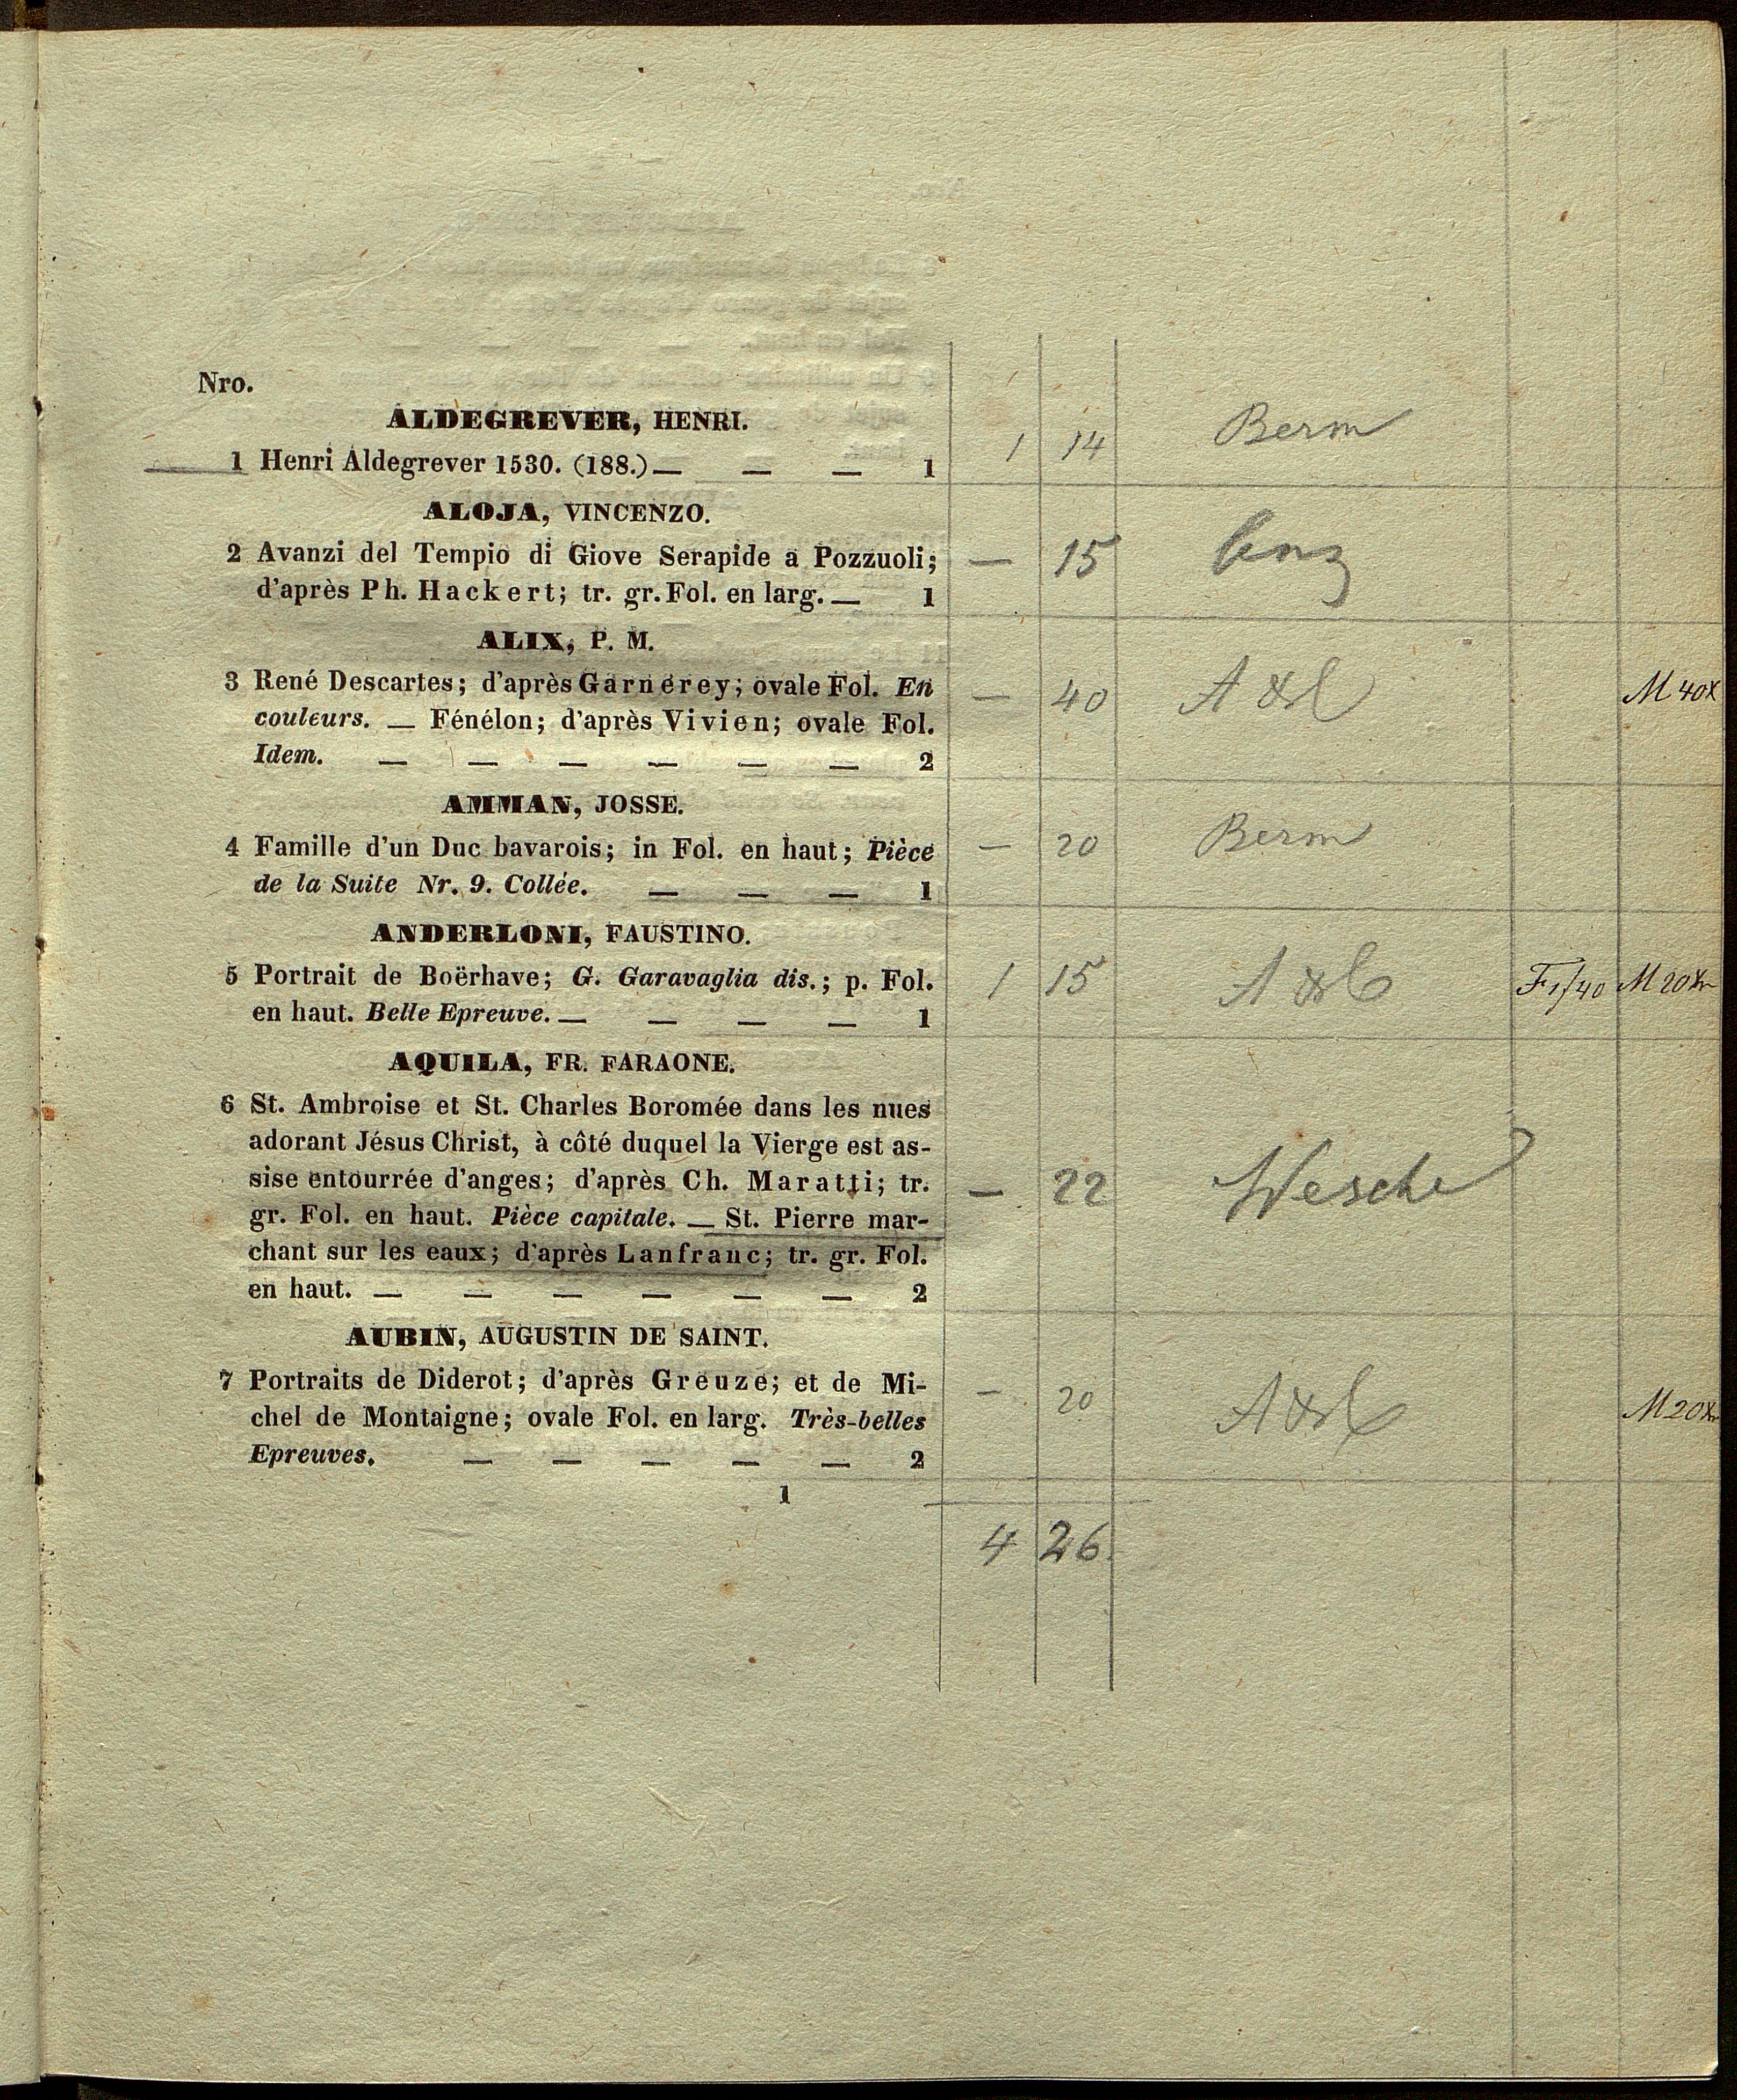 Nro.
ALDEGREVER, HENRI.
1 Henri Aldegrever 1530. (188.) — — — 1 | 1 | 14 | Berm
ALOJA, VINCENZO.
2 Avanzi del Tempio di Giove Serapide a Pozzuoli; — | 15
d'après Ph. Hackert; tr. gr. Fol. en larg. — 1
ALIX, P. M.
3 René Descartes; d'après Garnerey; ovale Fol. En — | 40 | M 40x
couleurs. — Fénélon; d'après Vivien; ovale Fol.
Idem. — — — — — — 2
AMMAN, JOSSE.
4 Famille d'un Duc bavarois; in Fol. en haut; Pièce — | 20 | Berm
de la Suite Nr. 9. Collée. — — — 1
ANDERLONI, FAUSTINO.
5 Portrait de Boërhave; G. Garavaglia dis.; p. Fol. 1 | 15 | F 1/40 | M 20x
en haut. Belle Epreuve. — — — — 1
AQUILA, FR. FARAONE.
6 St. Ambroise et St. Charles Boromée dans les nues
adorant Jésus Christ, à côté duquel la Vierge est as-
sise entourrée d'anges; d'après Ch. Maratti; tr. — | 22 | Wesche
gr. Fol. en haut. Pièce capitale. — St. Pierre mar-
chant sur les eaux; d'après Lanfranc; tr. gr. Fol.
en haut. — — — — — — 2
AUBIN, AUGUSTIN DE SAINT.
7 Portraits de Diderot; d'après Greuze; et de Mi- — | 20 | M 20x
chel de Montaigne; ovale Fol. en larg. Très-belles
Epreuves. — — — — — 2
1
4 | 26.